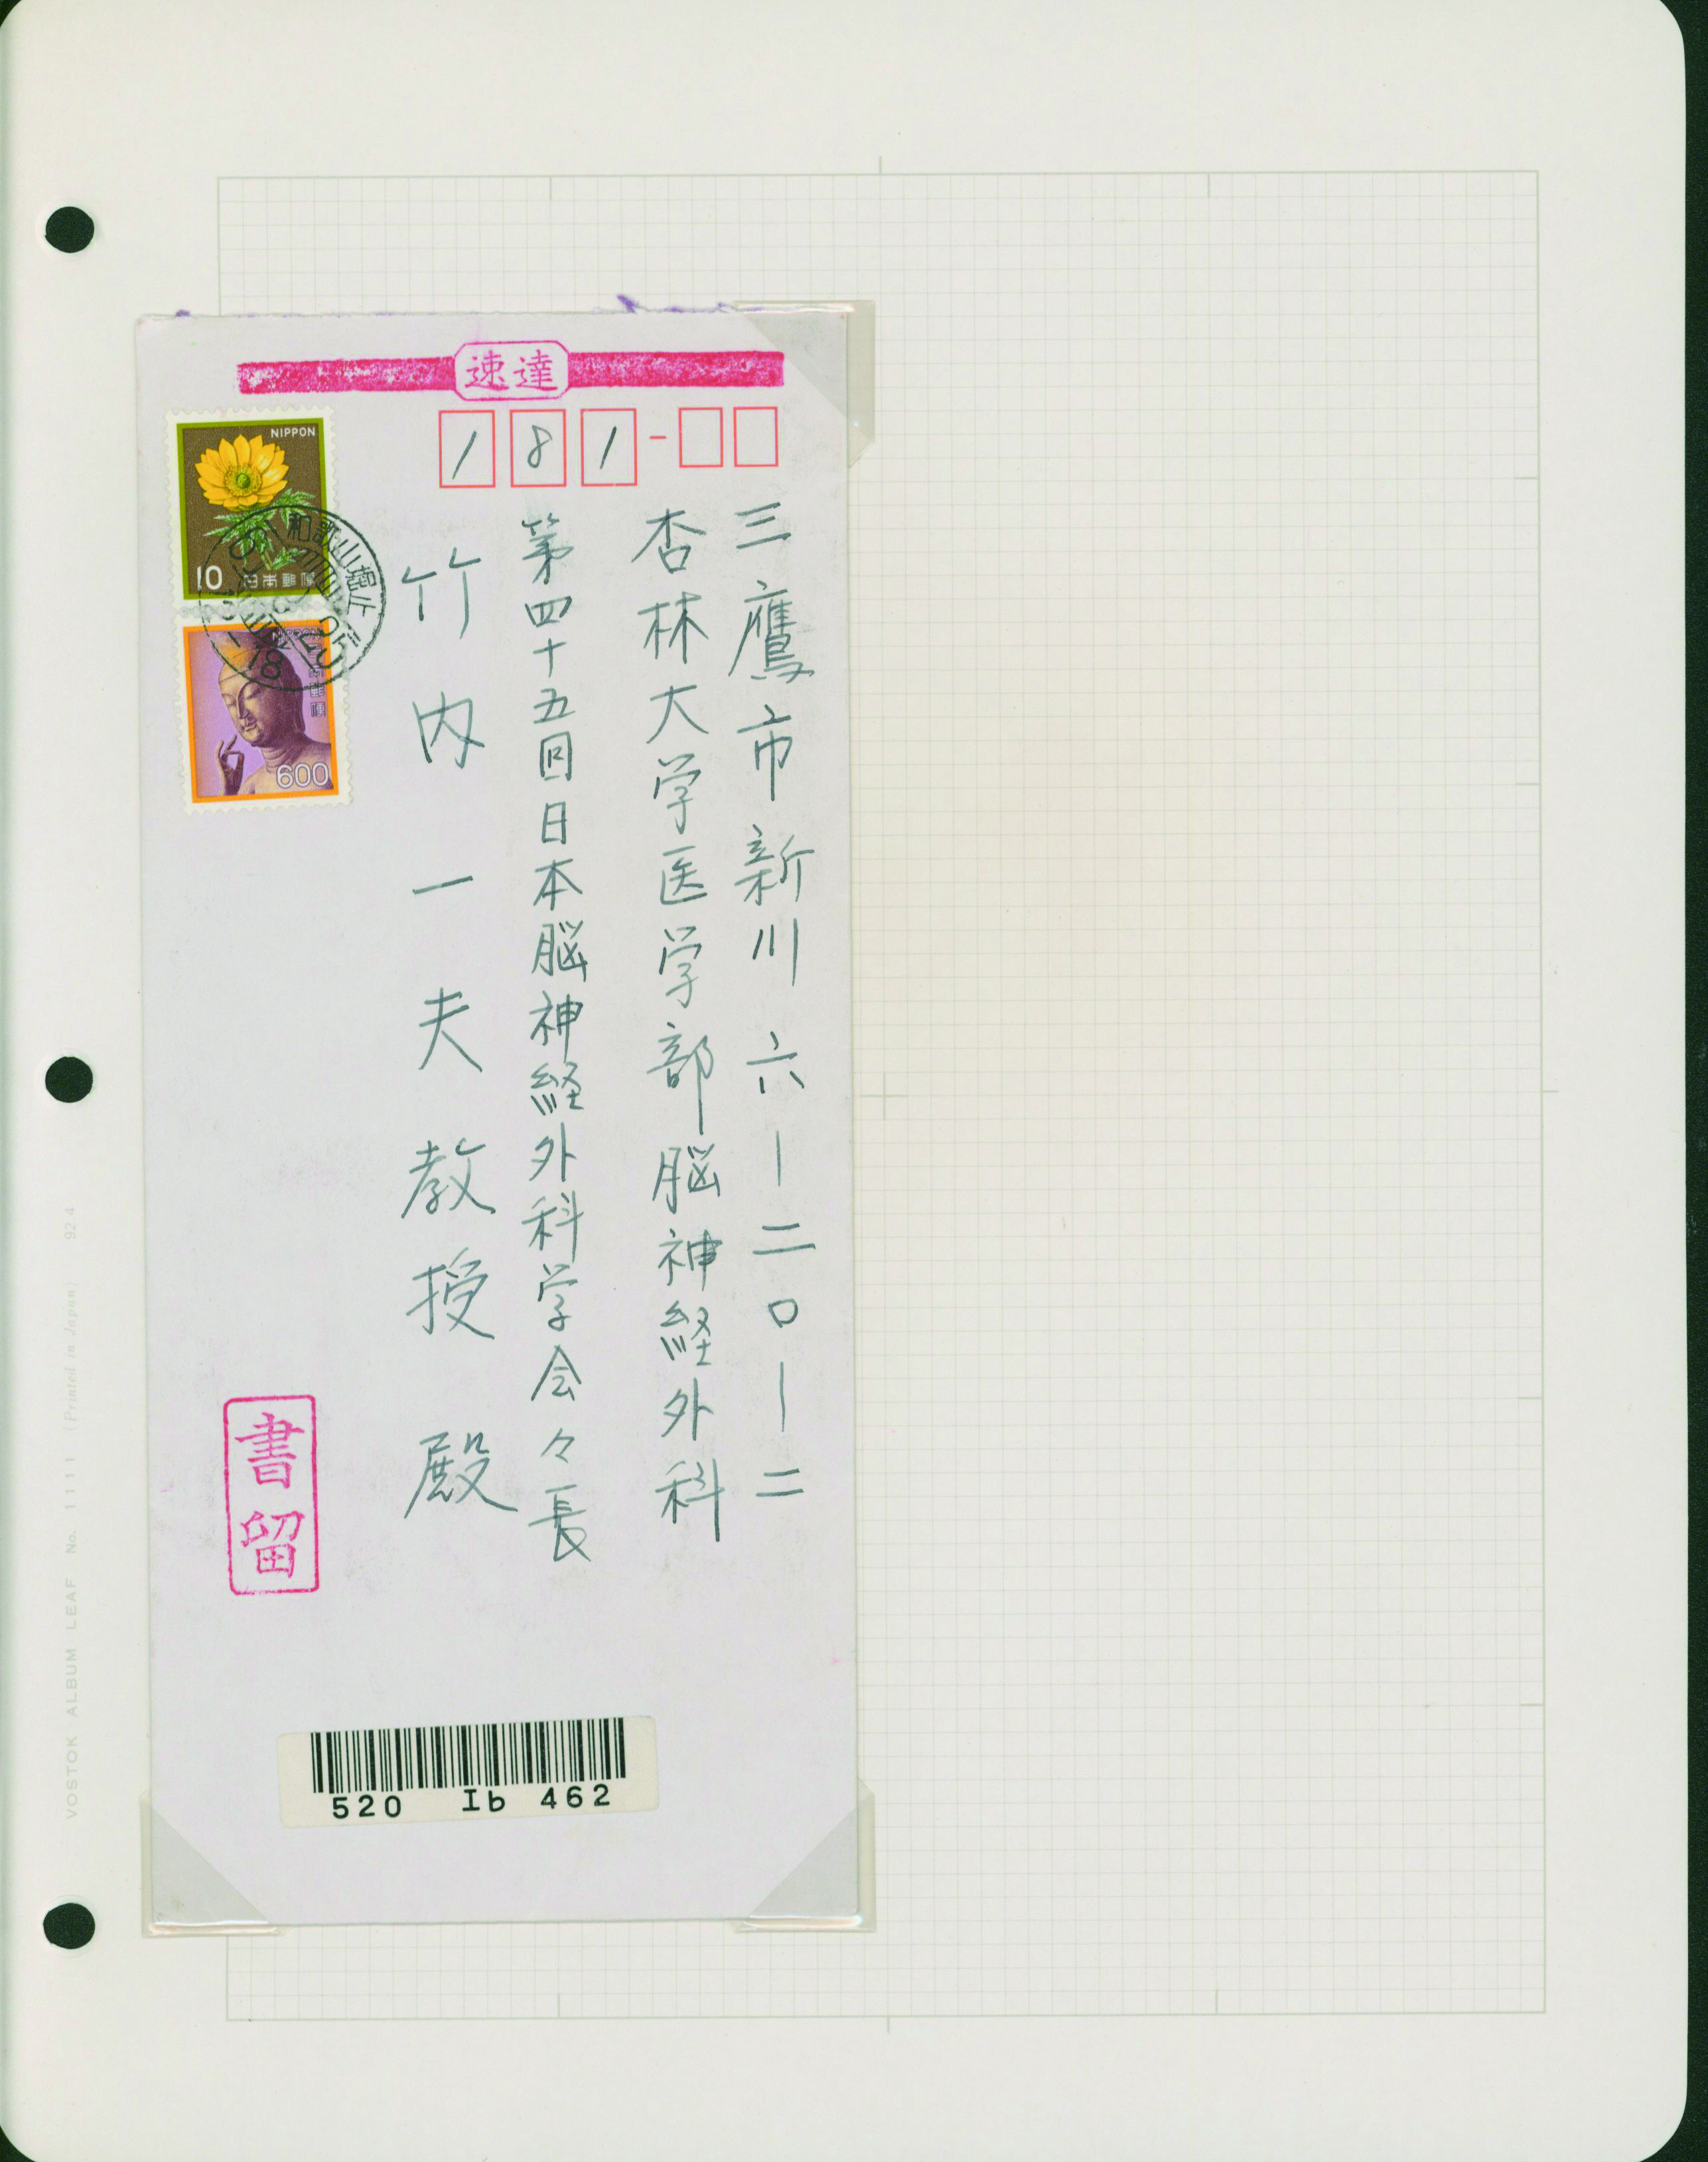 速達
181-
三鷹市新川六ー二〇ー二
杏林大学医学部脳神経外科
第四十五回日本脳神経外科学会々長
竹内一夫教授殿
NIPPON
10 日本郵便
NIPPON
日本郵便
600
和歌山
書留
520 Ib 462
VOSTOK ALBUM LEAF No. 1111 (Printed in Japan) 924